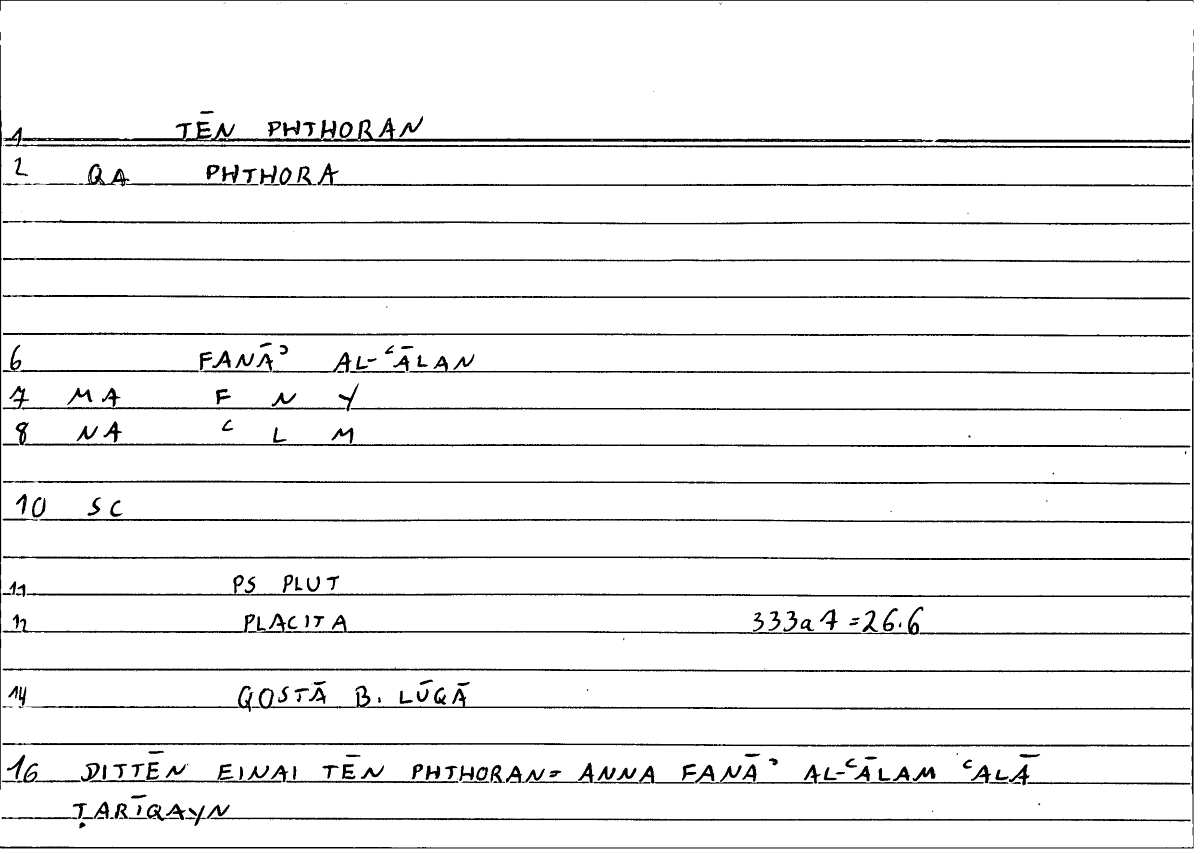 1 TĒN PHTHORAN
2 QA PHTHORA
6 FANĀʾ AL-ʿĀLAN
7 MA F N Y
8 NA ʿ L M
10 SC
11 PS PLUT
12 PLACITA 333a7=26.6
14 QOSTĀ B. LŪQĀ
16 DITTĒN EINAI TĒN PHTHORAN= ANNA FANĀʾ AL-ʿĀLAM ʿALĀ
ṬARĪQAYN